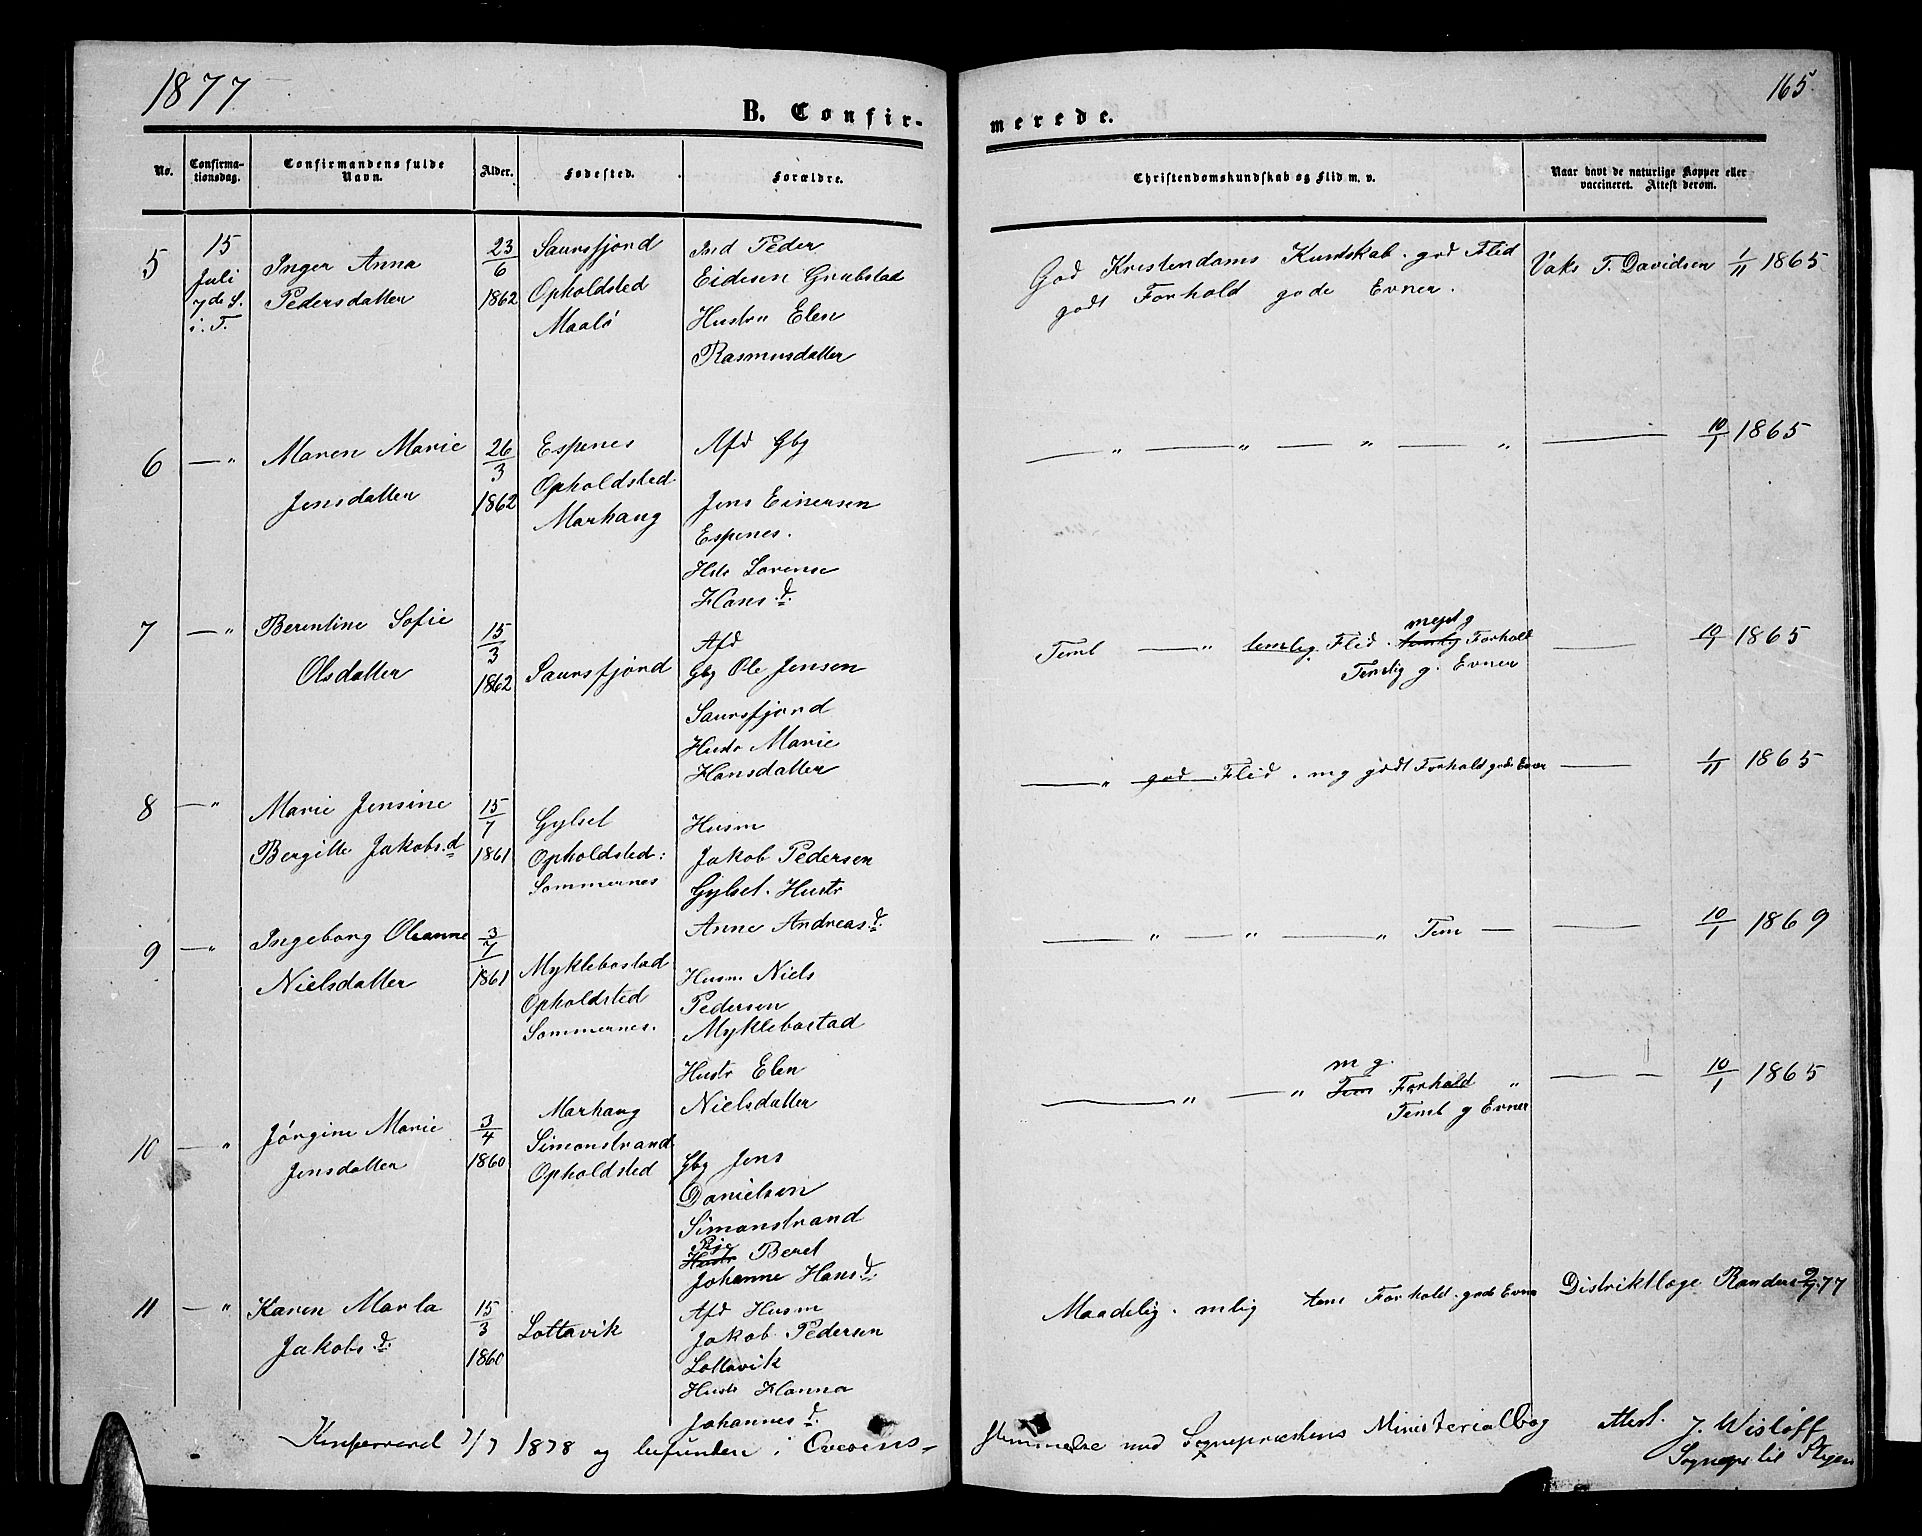 1877
165
B. Confir-
merede.
No.
Confirma-
tionsdag.
Confirmandens fulde
Navn.
Alder.
Fødested.
Forældre.
Christendomskundskab og Flid m. v.
Naar havt de naturlige Kopper eller
vaccineret. Attest derom.
5
15
Juli
7de S.
i. T.
Inger Anna
Pedersdatter
23/6
1862
Saursfjord
Opholdsted
Maalö
Ind Peder
Eidesen Grubstad
Hustru Elen
Rasmusdatter
God Kristendoms Kundskab. god Flid
godt Forhold gode Evner.
Vaks T. Davidsen 1/11 1865
6
— "
Maren Marie
Jensdatter
26/3
1862
Espenes
Opholdsted
Marhaug
Afd Gbg
Jens Einersen
Espenes.
Hste Lorense
Hans d.
— " — " — " — " —
10/1 1865
7
— "
Berentine Sofie
Olsdatter
15/3
1862
Saursfjord
Afd
Gbg Ole Jensen
Saursfjord
Hustr Marie
Hansdatter
meget g
Teml — " temlig Flid. temlig Forhold
Temlig g. Evner
— 10/1 1865
8
— "
Marie Jensine
Bergitte Jakobs.d
15/7
1861
Gylset
Opholdsted:
Sommernes
Husm
Jakob Pedersen
Gylset. Hustr
Anne Andreas d.
— " god Flid. mg godt Forhold gode Evner
— 1/11 1865
9
— "
Ingeborg Oleanne
Nielsdatter
3/7
1861
Myklebostad
Opholdsted
Sommernes.
Husm Niels
Pedersen
Myklebostad
Hustr Elen
Nielsdatter
— " — " — " Tem —
— 10/1 1869
10
— "
Jörgine Marie
Jensdatter
3/4
1860
Marhaug
Simonstrand
Opholdsted
Gbg Jens
Danielsen
Simonstrand
Pige
Hustr Beret
Johanne Hans d.
m g.
— " — " Tem Forhold "
Teml g Evner
— — 10/1 1865
11
— "
Karen Marla
Jakobs d.
15/3
1860
Lottavik
Afd Husm
Jakob Pedersen
Lottavik
Hustr Hanna
Johannes d.
Maadelig. mlig tem Forhold. gode Evner
Distriktlæge Randers 2/7 77
Konfererend 7/7 1878 og befunden i Overens-
stemmelse med Sogneprestens Ministerialbog
Attest.
J. Wislöff
Sognepr. til Stegen